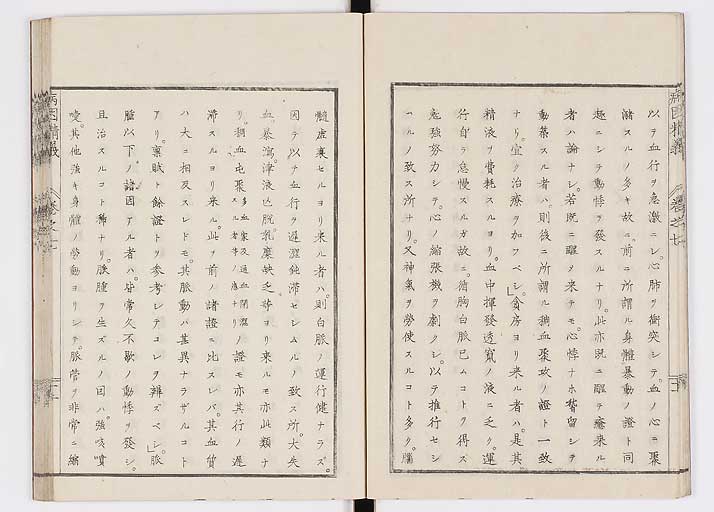 以テ血行ヲ急激ニシ。心肺ヲ衝突シテ。血ノ心ニ聚
潴スルノ多キ故ニ。前ニ所謂ル身體暴動ノ證ト同
趣ニシテ動悸ヲ發スルナリ。此亦既ニ醒テ療來ル
者ハ論ナシ。若既ニ醒ヲ來テモ。心悸ナホ留シテ
動築スル者ハ。則後ニ所謂ル稠血聚攻ノ證ト一致
ナリ。宜ク治療ヲ加フベシ」貪房ヨリ來ル者ハ。是其
精液ヲ費耗スルヨリ。血中揮發透竄ノ液ニ乏ク。運
行自ラ怠慢スルガ故ニ。循胸白脈已ムコトヲ得ズ
勉強努力シテ。心ノ縮張機ヲ劇クシ。以テ推行セシ
ムルノ致ス所ナリ。又神氣ヲ勞使スルコト多ク。腦
髓虛衰セルヨリ來ル者ハ。則白脈ノ運行健ナラズ。
因テ以テ血行ヲ遲澀鈍滯セシムルノ致ス所。大失
血。暴瀉。津液亡脫。乳糜缺乏等ヨリ來ルモ亦此類ナ
リ。稠血屯聚多血家及ヒ通血閉澀スル者等ノ應ナリノ證モ亦其行ノ遲
滯スルヨリ來ル。此ヲ前ノ諸證ニ比スレバ。其血質
ハ大ニ相反スレドモ。其脈動ハ甚異ナラザルコト
アリ。稟賦ト餘證トヲ參考シテコレヲ辨ズベシ」脈
腫以下ノ諸因アル者ハ。皆常久不歇ノ動悸ヲ發シ。
且治スルコト稀ナリ。脈腫ヲ生ズルノ因ハ。強咳嚔
噯。其他強キ身體ノ勞動ヨリシテ。脈管ヲ非常ニ縮
病因精義
卷之七